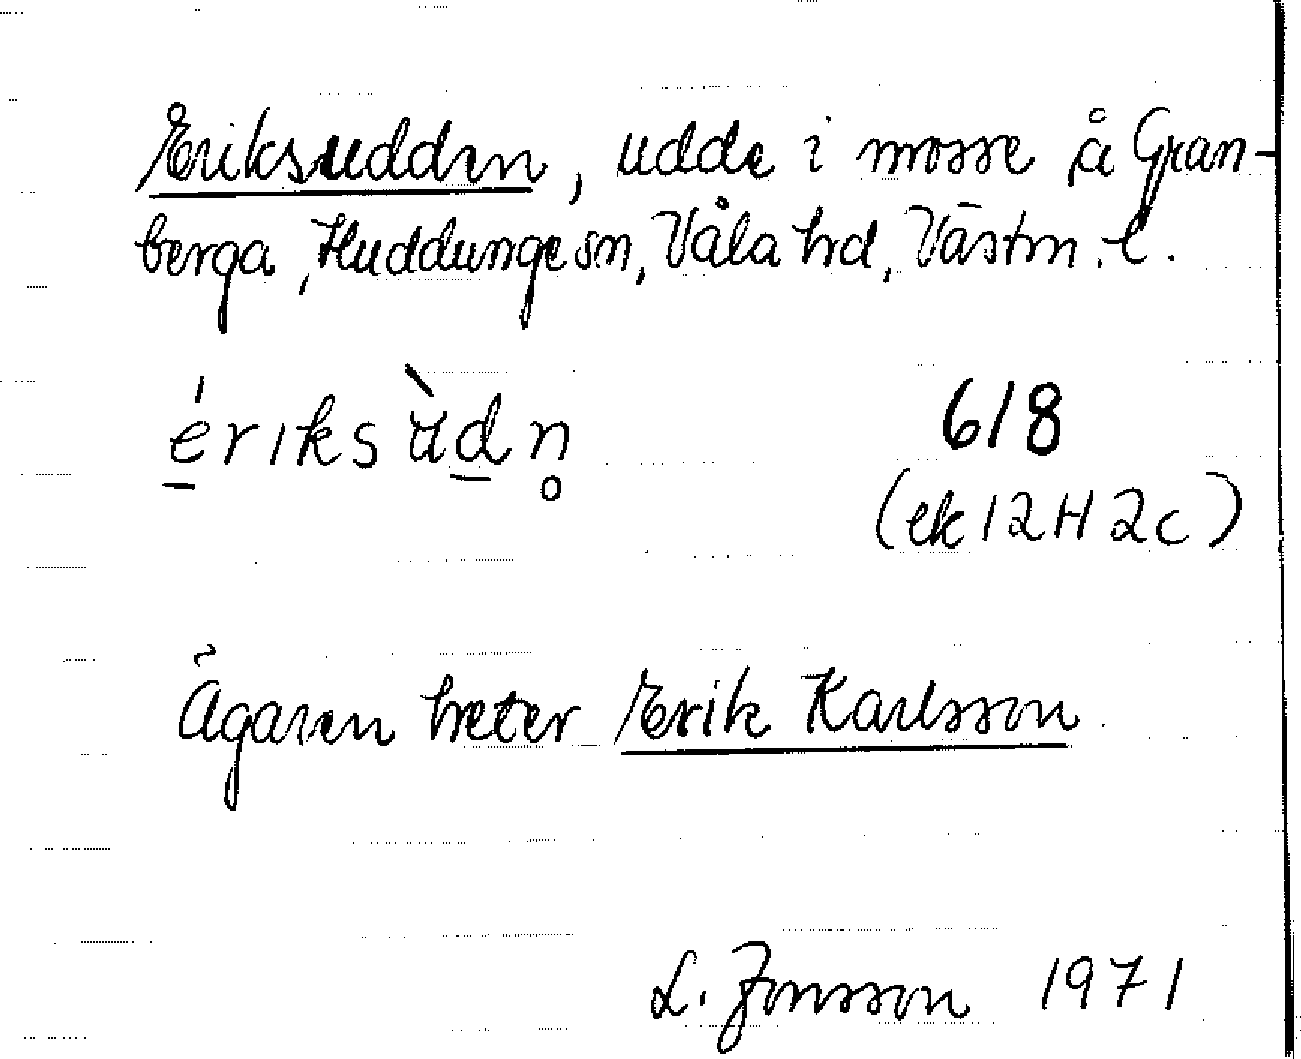 Eriksudden, udde i mosse å Gran-
berga, Huddunge sn, Våla hd, Västm. l.
é̱riksùḏn̥ 618
(ek 12H2c)
Ägaren heter Erik Karlsson.
L. Jonsson 1971